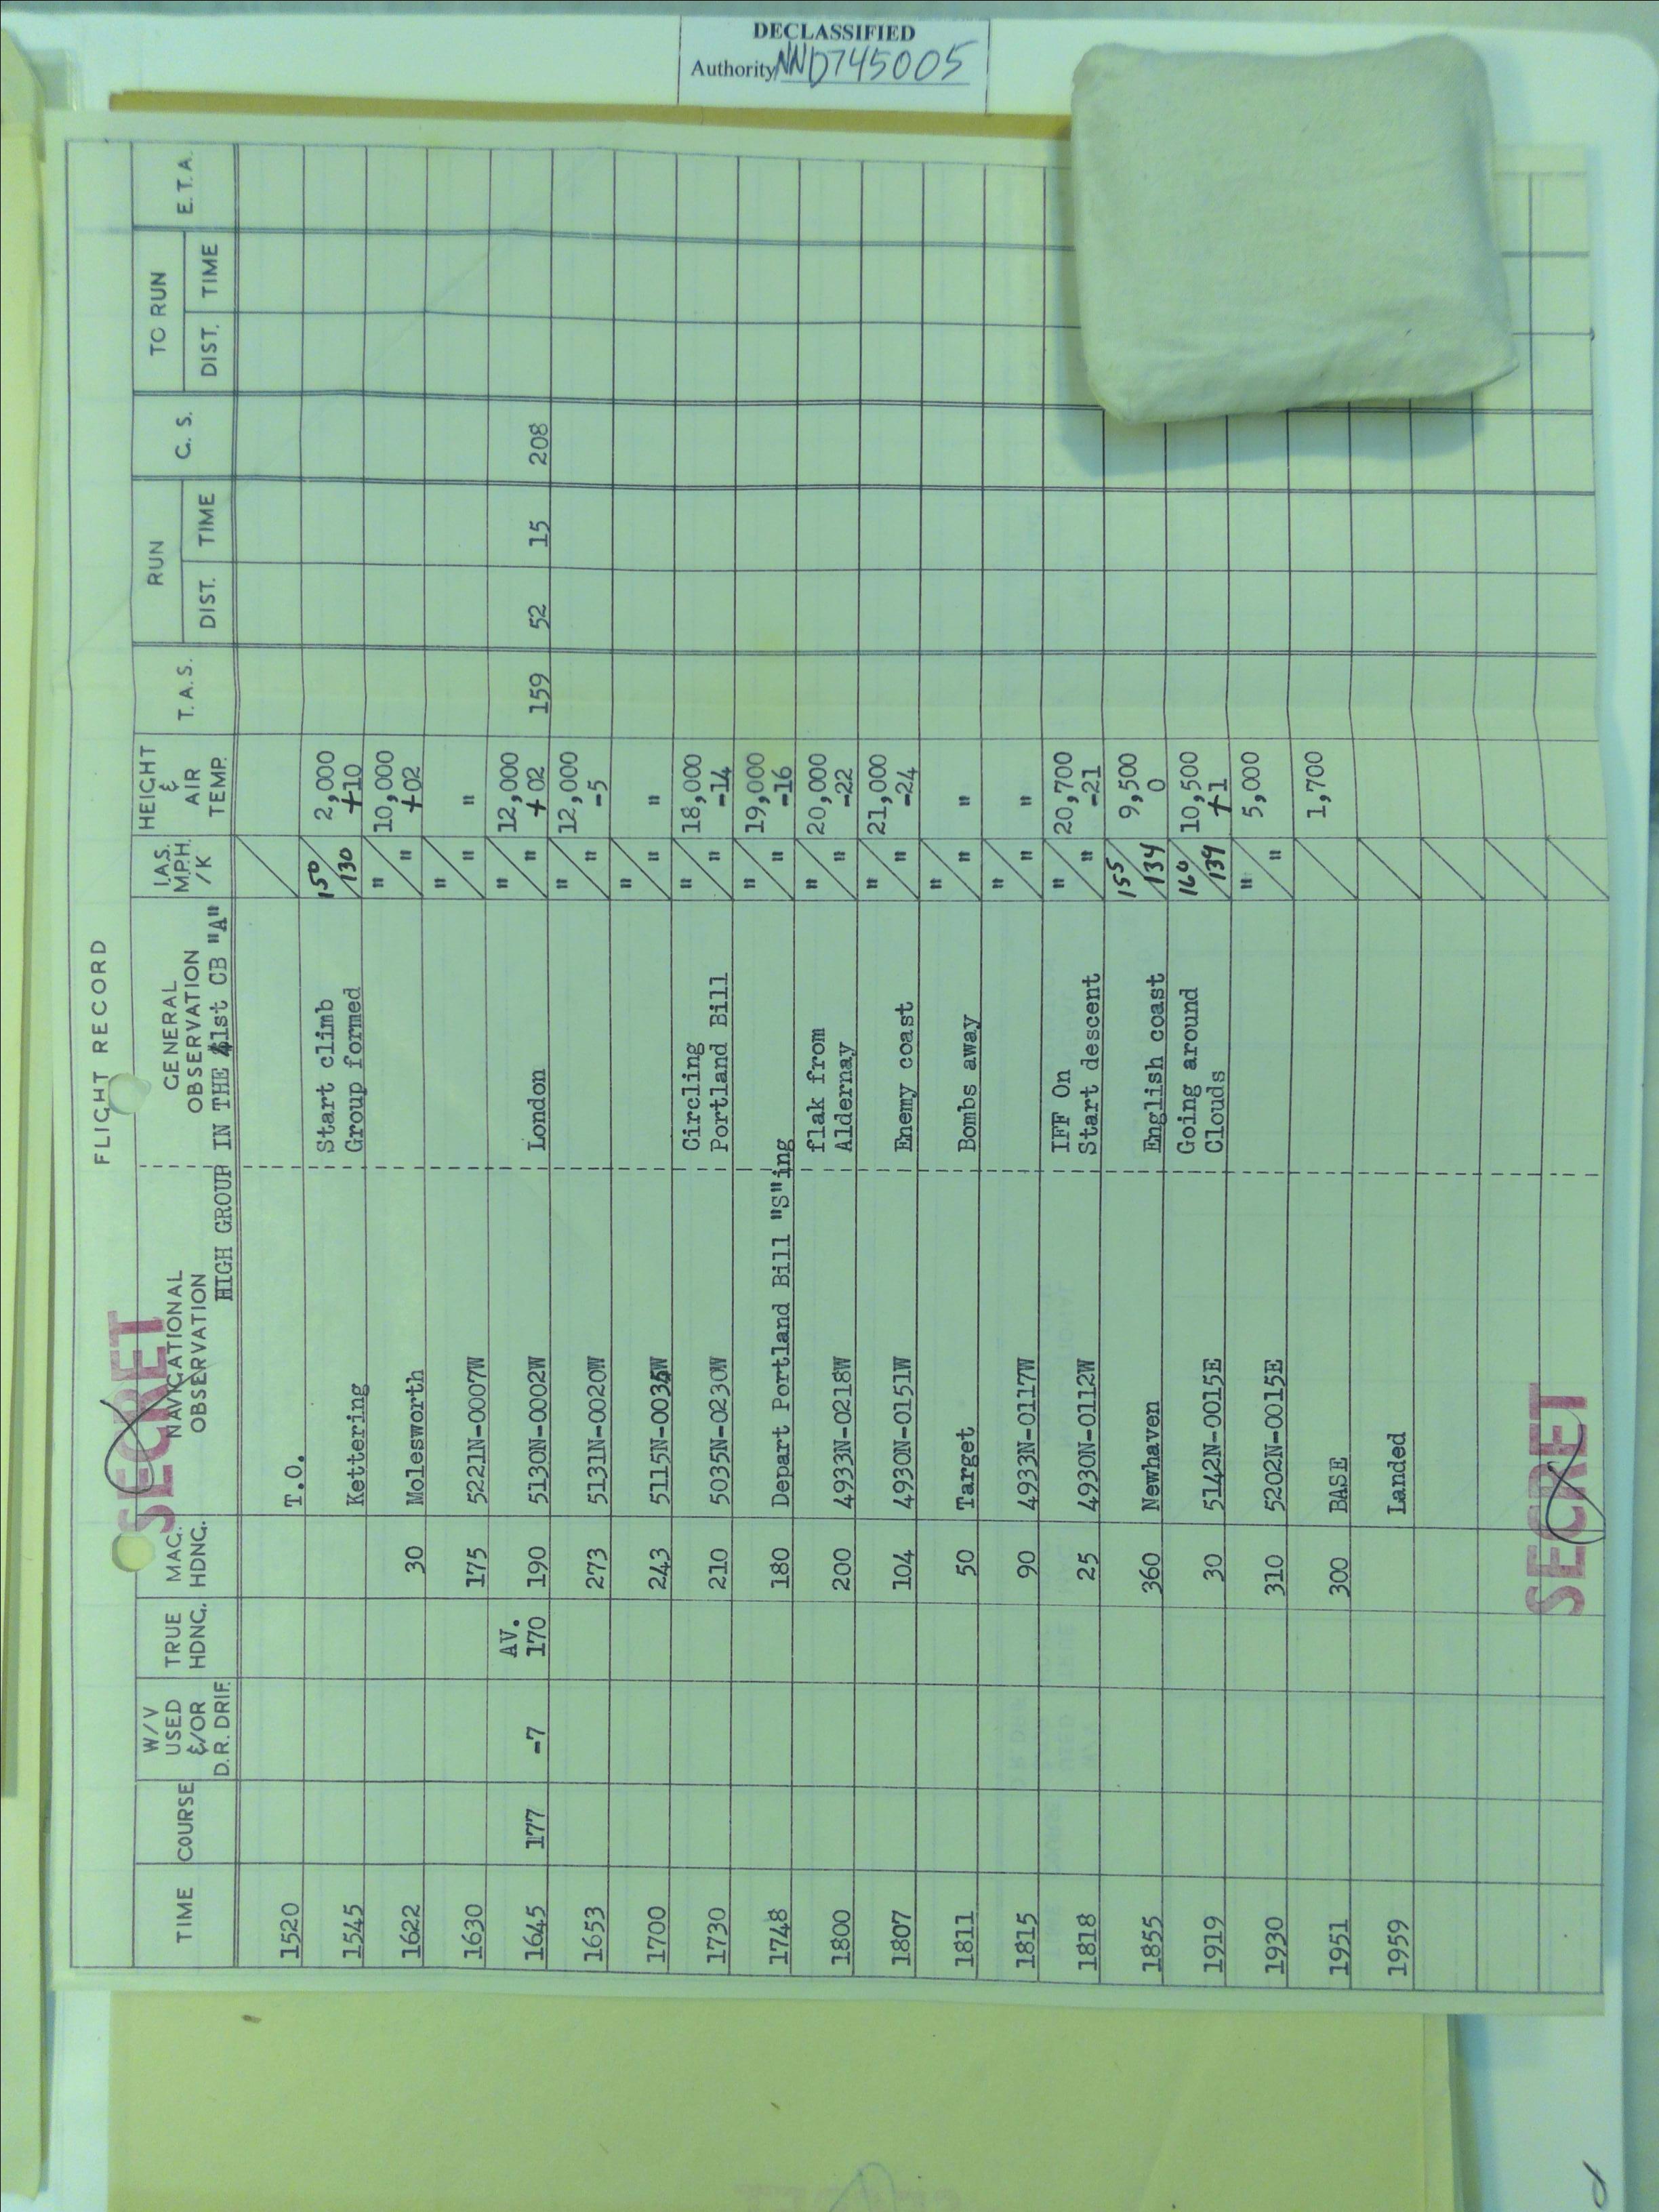 DECLASSIFIED
Authority NND745005
FLIGHT RECORD
SECRET
TIME COURSE W/V USED &/OR D.R. DRIF. TRUE HDNG. MAG. HDNG. NAVIGATIONAL OBSERVATION GENERAL OBSERVATION I.A.S. M.P.H. /K HEIGHT & AIR TEMP. T.A.S. RUN DIST. TIME G.S. TO RUN DIST. TIME E.T.A.
HIGH GROUP IN THE 41st CB "A"
1520 T.O.
1545 Kettering Start climb Group formed 150/130 2,000 +10
1622 30 Molesworth "/" 10,000 +02
1630 175 5221N-0007W "/" "
1645 177 -7 AV. 170 190 5130N-0002W London "/" 12,000 +02 159 52 15 208
1653 273 5131N-0020W "/" 12,000 -5
1700 243 5115N-0035W "/" "
1730 210 5035N-0230W Circling Portland Bill "/" 18,000 -14
1748 180 Depart Portland Bill "S"ing "/" 19,000 -16
1800 200 4933N-0218W flak from Aldernay "/" 20,000 -22
1807 104 4930N-0151W Enemy coast "/" 21,000 -24
1811 50 Target Bombs away "/" "
1815 90 4933N-0117W "/" "
1818 25 4930N-0112W IFF On Start descent "/" 20,700 -21
1855 360 Newhaven English coast 155/134 9,500 0
1919 30 5142N-0015E Going around Clouds 160/139 10,500 +1
1930 310 5202N-0015E "/" 5,000
1951 300 BASE 1,700
1959 Landed
SECRET